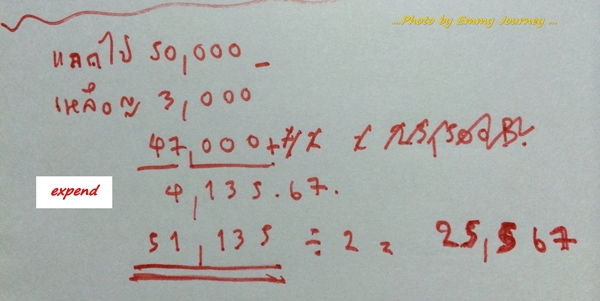 ...Photo by Emmy Journey...
แลกไป 50,000 _
เหลือ 3,000
47,000
expend 4,135.67.
51,135 ÷ 2 = 25,567